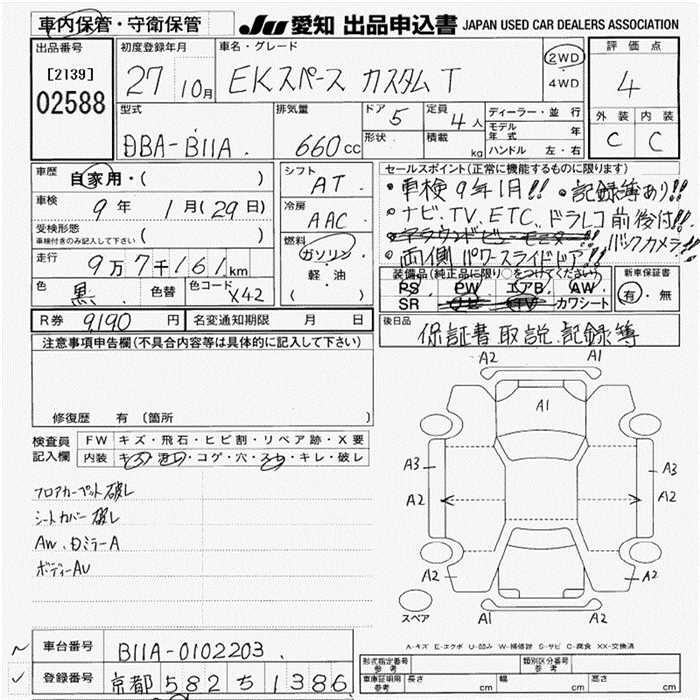 車内保管・守衛保管
JU 愛知 出品申込書 JAPAN USED CAR DEALERS ASSOCIATION
出品番号
[2139]
02588
初度登録年月
27 10月
車名・グレード
EKスペース カスタム T
2WD
・
4WD
評価点
4
外装 内装
C C
型式
DBA-B11A
排気量
660cc
ドア
5
定員
4人
形状
積載
kg
ディーラー・並行
モデル年式 年
ハンドル 左・右
車歴
自家用・( )
車検
9年 1月(29日)
受検形態
車検付きのみ記入して下さい ( )
走行
9万7千161km
色
黒
色替
色コード
X42
シフト
AT
冷房
AAC
燃料
ガソリン
軽・油
( )
セールスポイント(正常に機能するものに限ります)
・車検9年1月!! ・記録簿あり!!
・ナビ、TV、ETC、ドラレコ前後付!!
・アラウンドビューモニター!! バックカメラ!!
・両側パワースライドドア!!
装備品(純正品に限り○をつけてください)
PS PW エアB AW
SR カワシート
新車保証書
有・無
R券 9,190 円
名変通知期限 月 日
後日品
保証書 取説、記録簿
注意事項申告欄(不具合内容等は具体的に記入して下さい)
修復歴 有 (箇所 )
検査員記入欄
FW キズ・飛石・ヒビ割・リペア跡・X要
内装 キズ・汚れ・コゲ・穴・スレ・キレ・破レ
フロアカーペット破レ
シートカバー破レ
AW、DミラーA
ボディーAU
A2 A1
A1
A3 A3
A2 A2
A2 A2
スペア
A2 A1
A-キズ E-エクボ U-凹み W-補修跡 S-サビ C-腐食 XX-交換済
車台番号
B11A-0102203
登録番号
京都 582 ち 1386
形式指定番号
参考
類別区分番号
参考
車庫証明用
参考
長さ cm 幅 cm 高さ cm